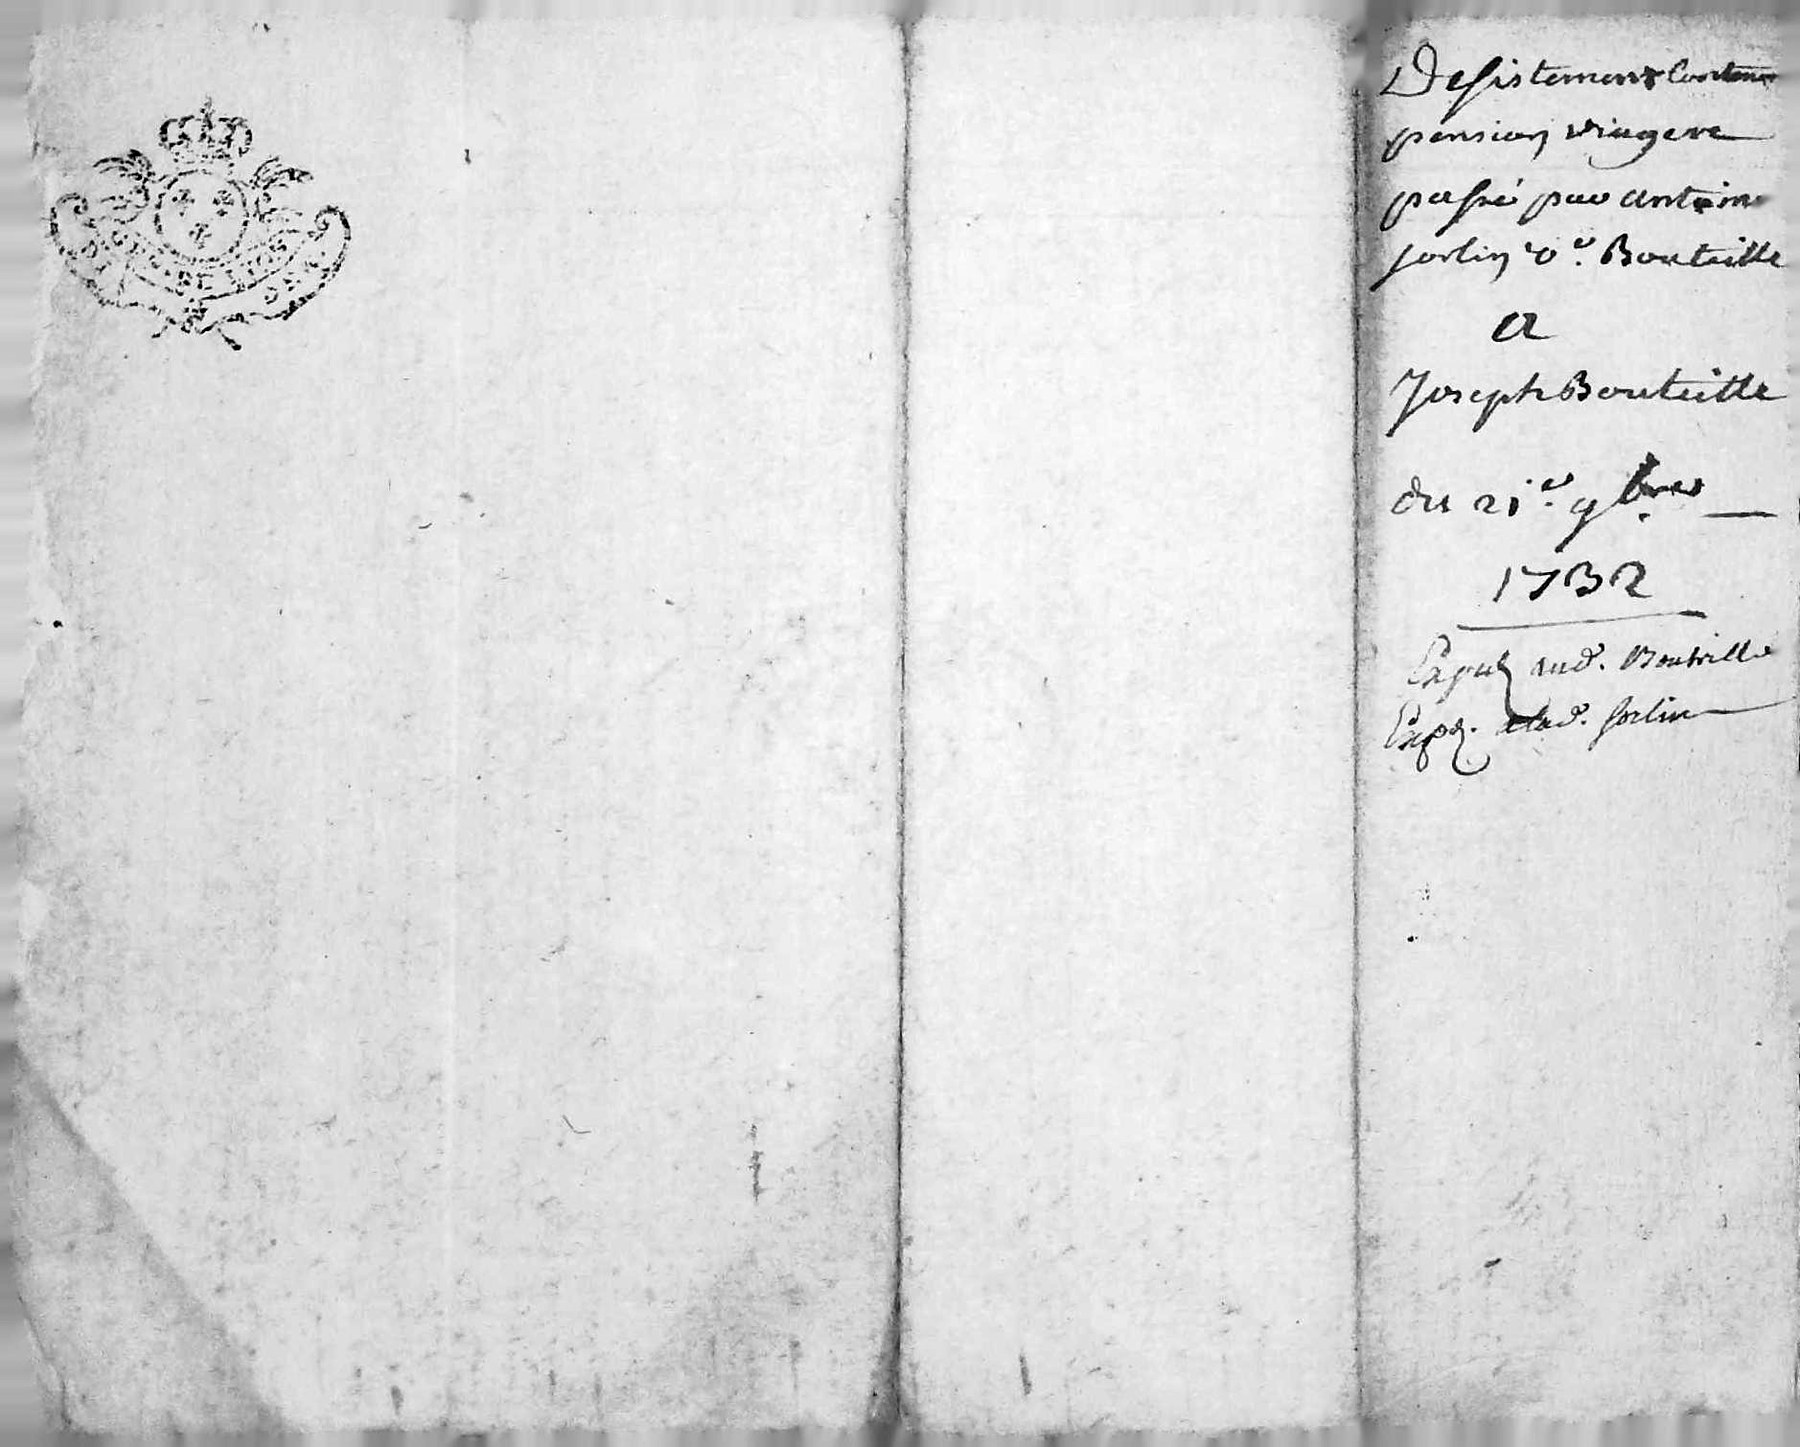 Desistement Conten
pension viagere
passé par antoine
sorlin ve. Bouteille
a
Joseph Bouteille
du 21e. 9bre
1732
Expedé aud. Bouteille
Exp. a lad. sorlin